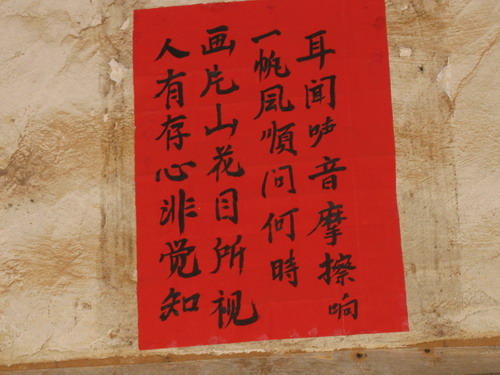 耳闻声音摩擦响
一帆风順问何時
画片山花目所视
人有存心非觉知